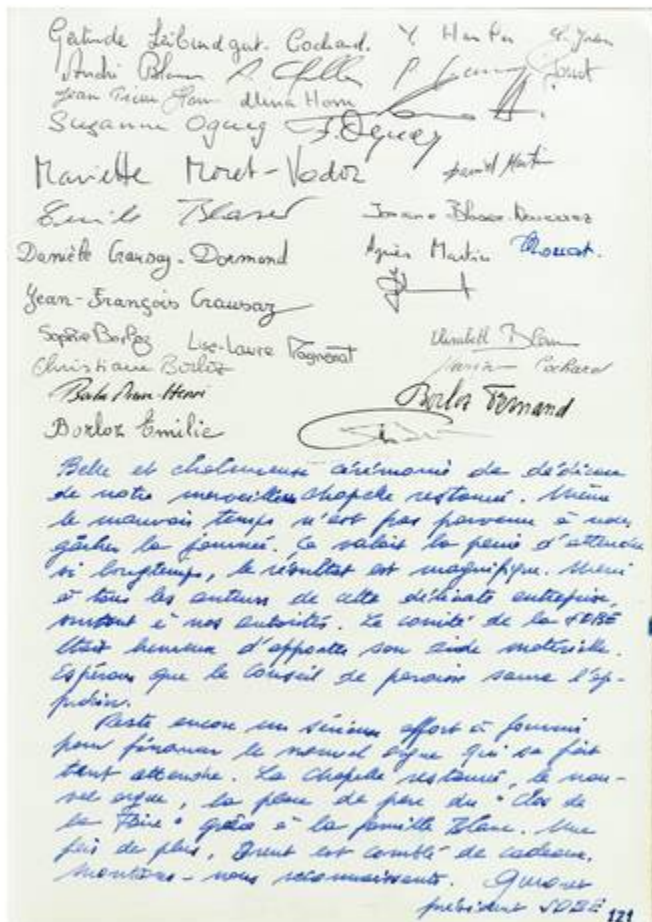 Gertrude Leibundgut. Cochard. Y.
André Blanc A. P.
Jean Mina Horn
Suzanne Oguey F. Oguey
Mariette Moret-Vodoz Daniel Martin
Emile Blaser Josiane Blaser-
Danièle Crausaz-Dormond Agnès Martin
Jean-François Crausaz
Sophie Borloz Lise-Laure Magnenat Elisabeth Blanc
Christiane Borloz Cochard
Henri Borloz Fernand
Borloz Emilie
Belle et chaleureuse cérémonie de dédicace
de notre merveilleuse chapelle restaurée. Même
le mauvais temps n'est pas parvenu à nous
gâcher la journée. Ça valait la peine d'attendre
si longtemps, le résultat est magnifique. Merci
à tous les auteurs de cette délicate entreprise,
surtout à nos autorités. Le comité de la SDBE
était heureux d'apporter son aide matérielle.
Espérons que le Conseil de paroisse saura l'ap-
précier.
Reste encore un sérieux effort à fournir
pour financer le nouvel orgue qui se fait
tant attendre. La chapelle restaurée, le nou-
vel orgue, la place de parc du "Clos de
la Foire" grâce à la famille Blanc. Une
fois de plus, est comblé de cadeaux.
Montrons-nous reconnaissants.
président SDBE 121